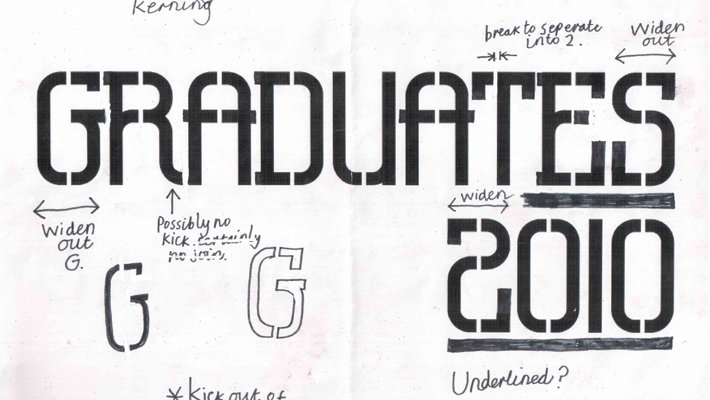 Kerning
break to seperate
into 2.
Widen
out
GRADUATES
Widen
out
G.
Possibly no
kick. certainly
no join.
widen
2010
G
G
Underlined?
* Kick out of